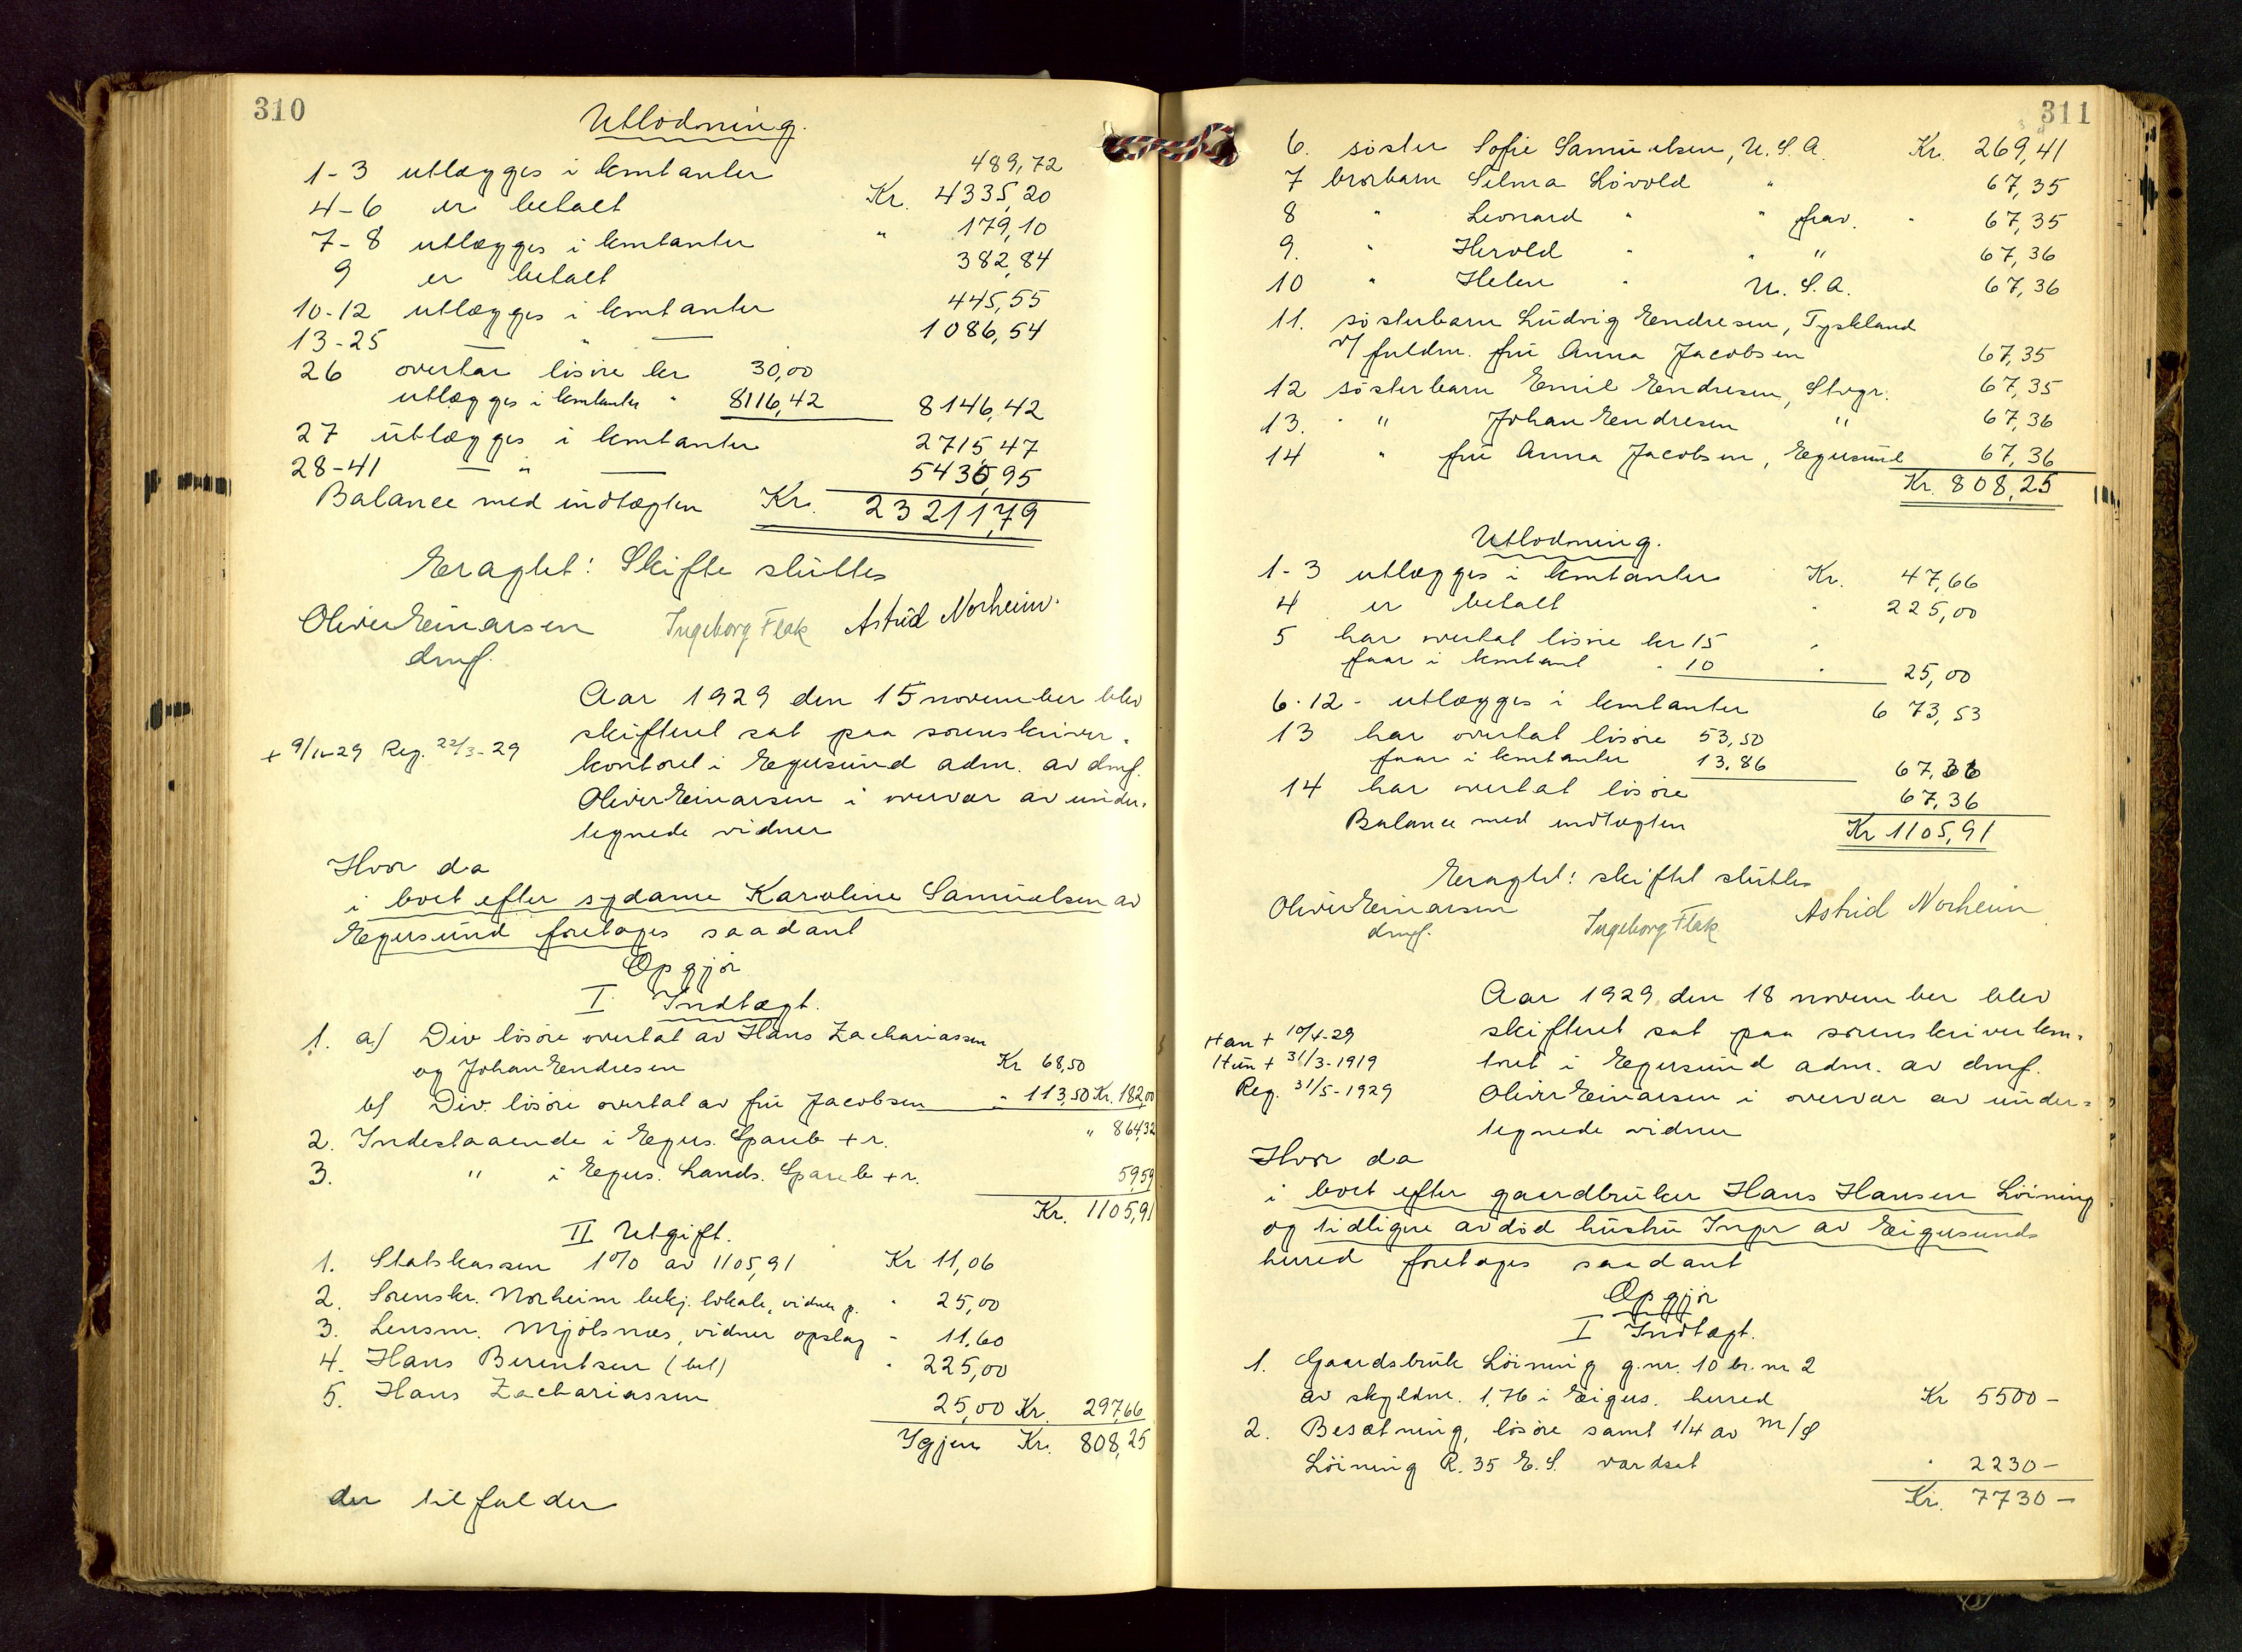 310
Utlodning.
1-3 utlægges i kontanter 489,72
4-6 er betalt Kr. 4335,20
7-8 utlægges i kontanter " 179,10
9 er betalt 382,84
10-12 utlægges i kontanter 445,55
13-25 — " — 1086,54
26 overtar løsøre kr 30,00
utlægges i kontanter " 8116,42 8146,42
27 utlægges i kontanter 2715,47
28-41 — " — 5430,95
Balance med indtægten Kr. 23211,79
Eragtet: Skifte sluttes
Oliver Einarsen Ingeborg Flak Astrid Norheim.
dmf.
Aar 1929 den 15 november blev
+ 9/11-29 Reg. 22/3-29
skifteret sat paa sorenskriver-
kontoret i Egersund adm. av dmf.
Oliver Einarsen i overvær av under-
tegnede vidner
Hvor da
i boet efter sydame Karoline Samuelsen av
Egersund foretoges saadant
Opgjør
I Indtægt.
1. a) Div løsøre overtat av Hans Zachariassen
og Johan Endresen Kr 68,50
b) Div. løsøre overtat av fru Jacobsen " 113,50 Kr. 182,00
2. Indestaaende i Egers. Spareb + r. " 864,32
3. " i Egers. Lands. Spareb + r. 59,59
Kr. 1105,91
II Utgift.
1. Statskassen 1% av 1105,91 Kr 11,06
2. Sorenskr. Norheim bekj. lokale, vidner p. " 25,00
3. Lensm. Mjølsnes, vidner opslag " 11,60
4. Hans Berentsen (bet) " 225,00
5. Hans Zachariassen 25,00 Kr. 297,66
Igjen Kr. 808,25
der tilfalder
311
6. søster Sofie Samuelsen, U.S.A. Kr. 269,41
7 brorbarn Selma Løvold " 67,35
8 " Leonard " " frav. " 67,35
9. " Herold " " " 67,36
10 " Helen " U.S.A. 67,36
11. søsterbarn Ludvig Endresen, Tyskland
v/ fuldm. fru Anna Jacobsen 67,35
12 søsterbarn Emil Endresen, Stvgr. 67,35
13. " " Johan Endresen " 67,36
14 " fru Anna Jacobsen, Egersund 67,36
Kr. 808,25
Utlodning.
1-3 utlægges i kontanter Kr. 47,66
4 er betalt " 225,00
5 har overtat løsøre kr 15 "
faar i kontant " 10 " 25,00
6-12 - utlægges i kontanter 673,53
13 har overtat løsøre 53,50
faar i kontanter 13,86 67,36
14 har overtat løsøre 67,36
Balance med indtægten Kr 1105,91
Eragtet: skiftet sluttes
Oliver Einarsen Ingeborg Flak Astrid Norheim
dmf.
Aar 1929 den 18 november blev
Han + 10/4-29
Hun + 31/3-1919
Reg. 31/5-1929
skifteret sat paa sorenskriverkon-
toret i Egersund adm. av dmf.
Oliver Einarsen i overvær av under-
tegnede vidner
Hvor da
i boet efter gaardbruker Hans Hansen Løining
og tidligere avdød hustru Inger av Eigersunds
herred foretoges saadant
Opgjør
I Indtægt.
1. Gaardsbruk Løining g.nr. 10 br. nr 2
av skyldm. 1,76 i Eigers. herred Kr 5500 -
2. Besætning, løsøre samt 1/4 av M/S
Løining R. 35 E.S. værdsat " 2230 -
Kr. 7730 -